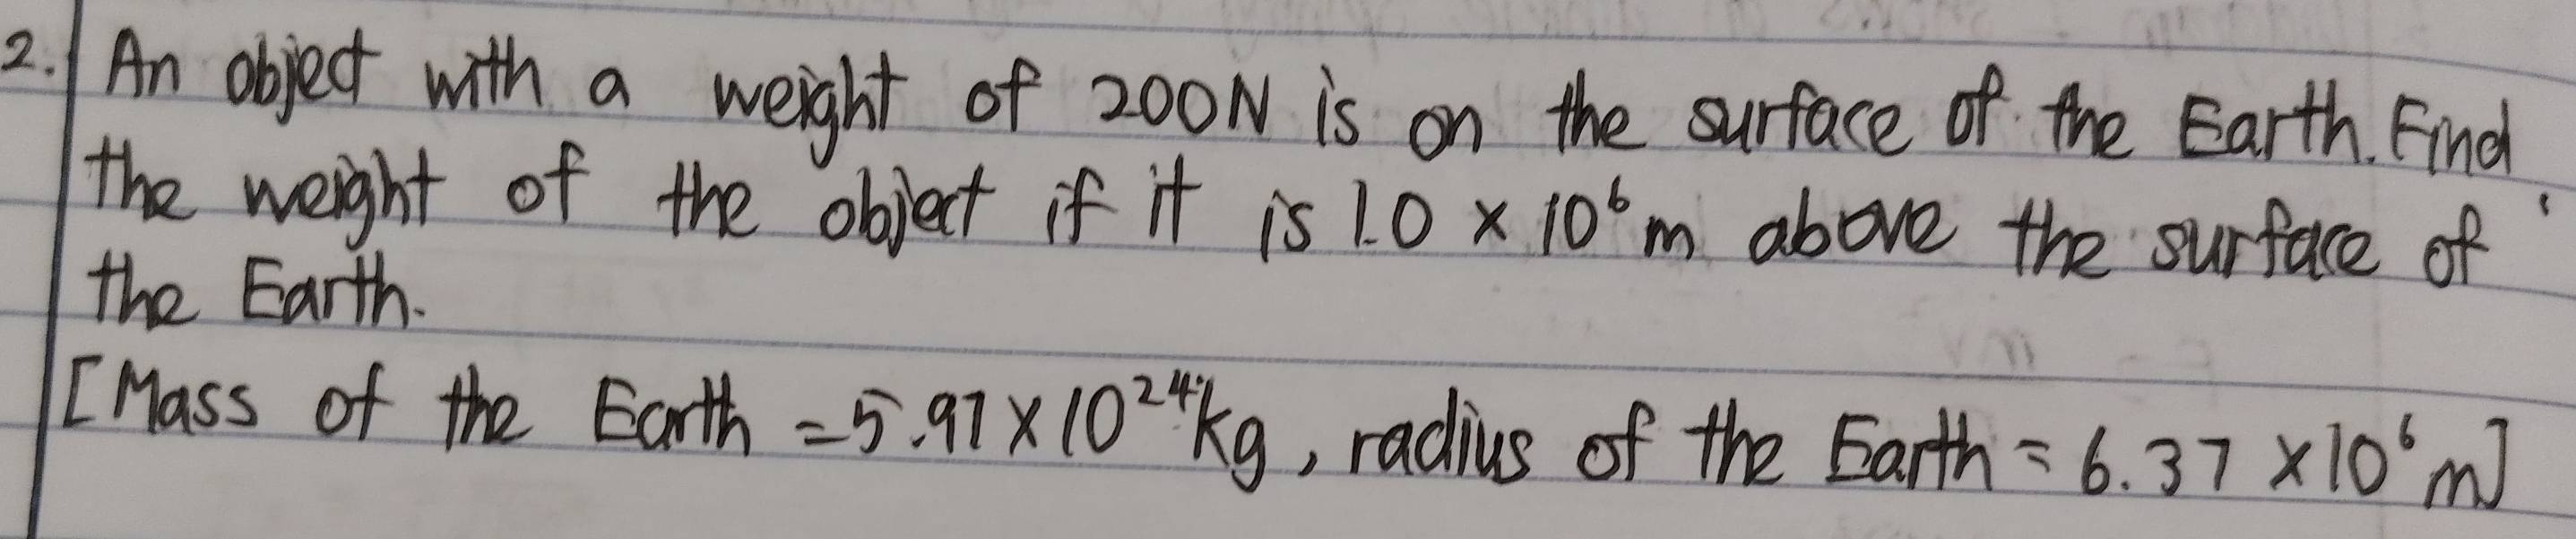 2. An object with a weight of 200N is on the surface of the Earth. Find
the weight of the object if it is 1.0 × 10⁶ m above the surface of
the Earth.
[Mass of the Earth = 5.97 × 10²⁴ kg, radius of the Earth = 6.37 × 10⁶ m]